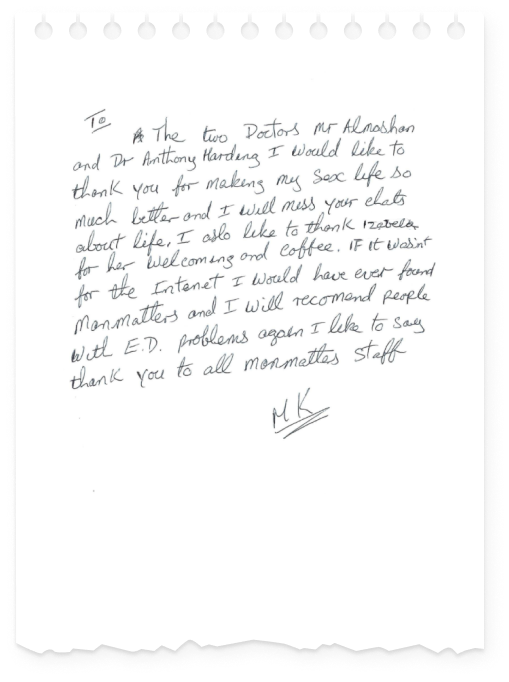 To
The two Doctors Mr Almoshan
and Dr Anthony Harding I would like to
thank you for making my Sex life so
much better and I will miss your chats
about life, I aslo like to thank Izabela
for her welcoming and coffee. IF it wasint
for the Intenet I would have ever found
Manmatters and I will recomend people
with E.D. problems again I like to say
thank you to all manmattes staff
MK